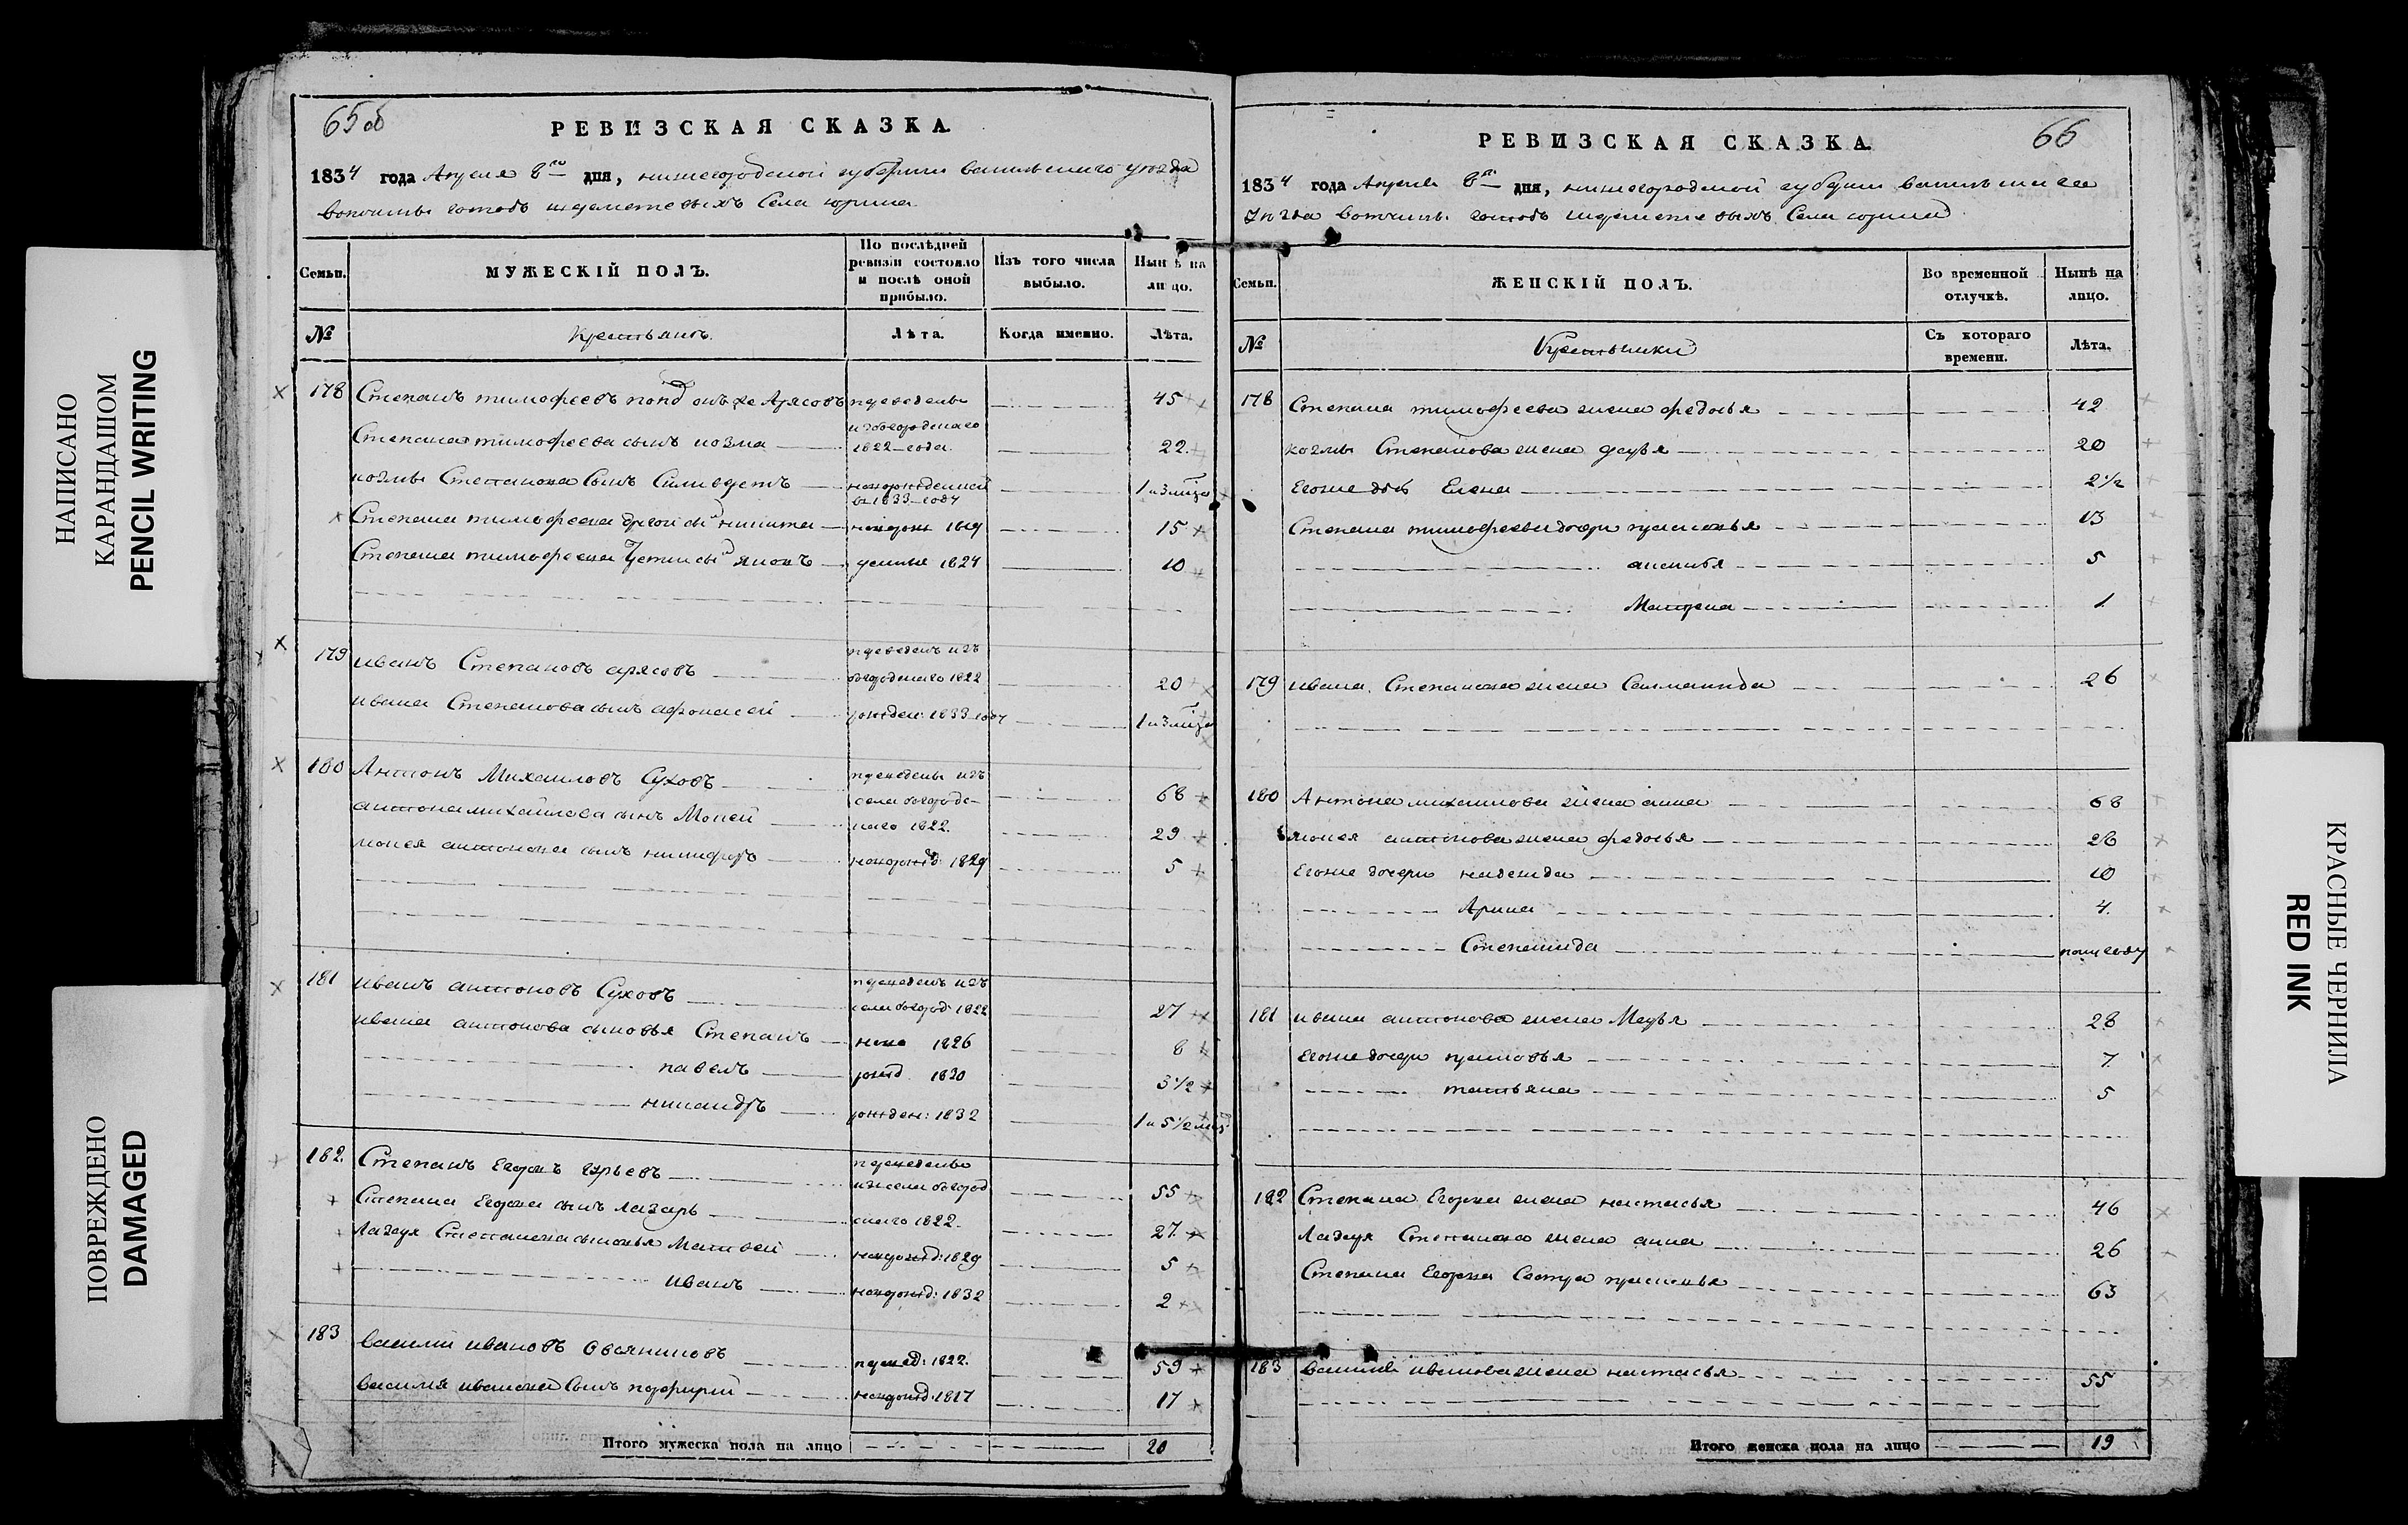 НАПИСАНО
КАРАНДАШОМ
PENCIL WRITING
ПОВРЕЖДЕНО
DAMAGED
65об
РЕВИЗСКАЯ СКАЗКА.
1834 года Апреля 8го дня, нижегородской губернии васильского уезда
вотчины господъ шереметевыхъ Села юрина
Семьи.
МУЖЕСКІЙ ПОЛЪ.
По послѣдней ревизіи состояло и послѣ оной прибыло.
Изъ того числа выбыло.
Нынѣ на лицо.
№
Крестьянъ.
Лѣта.
Когда именно.
Лѣта.
178 Степанъ тимофеевъ переведены 45
Степана тимофеева сынъ козма 1822 года 22
козмы Степанова Сынъ новорожденной въ 1833 году 1 и 3 мца
Степана тимофеева другой сынъ никита 1819 15
Степана тимофеева 1824 10
179 иванъ Степановъ арясовъ переведенъ изъ богородскаго 1822 20
ивана Степанова сынъ афонасей рожден: 1833 году 1 и 3 мца
180 Антонъ Михаиловъ Суховъ переведены изъ села богородскаго 1822. 68
антона михайлова сынъ Мокей 29
мокея антонова сынъ никифоръ новорожд: 1829 5
181 иванъ антоновъ Суховъ переведенъ изъ села богород: 1822 27
ивана антонова сыновья Степанъ 1826 8
павелъ рожд 1830 3 1/2
никандръ рожден: 1832 1 и 5 1/2 мца
182. Степанъ Егоровъ гурьевъ переведены изъ села богородскаго 1822. 55
Степана Егорова сынъ лазарь 27
Лазаря Степанова сыновья Матвей новорожд: 1829 5
иванъ новорожд: 1832 2
183 василий ивановъ Овсяниковъ перевед: 1822. 59
василья иванова Сынъ порфирий новорожд: 1817 17
Итого мужеска пола на лицо 20
66
РЕВИЗСКАЯ СКАЗКА.
1834 года Апреля 8го дня, нижегородской губернии васильскаго
уезда вотчины господъ шереметевыхъ Села юрина
Семьи.
ЖЕНСКІЙ ПОЛЪ.
Во временной отлучкѣ.
Нынѣ на лицо.
№
Крестьянки
Съ котораго времени.
Лѣта.
178 Степана тимофеева жена федосья 42
козмы Степанова жена дарья 20
Егоже дочь Елена 2 1/2
Степана тимофеева дочери прасковья 13
аксинья 5
Матрена 1.
179 ивана Степанова жена Саламанида 26
180 Антона михаилова жена анна 68
мокея антонова жена федосья 26
Егоже дочери надежда 10
Арина 4.
Степанида полугоду
181 ивана антонова жена Марья 28
Егоже дочери прасковья 7.
татьяна 5
182 Степана Егорова жена настасья 46
Лазаря Степанова жена анна 26
Степана Егорова Сестра прасковья 63
183 василья иванова жена настасья 55
Итого женска пола на лицо 19
КРАСНЫЕ ЧЕРНИЛА
RED INK